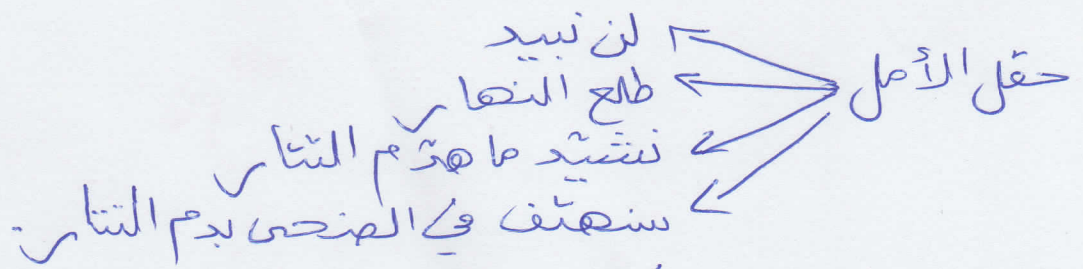 حقل الأمل
لن نبيد
طلع النهار
نشيّد ما هدّم التتار
سنهتف في الضحى بدم التتار.